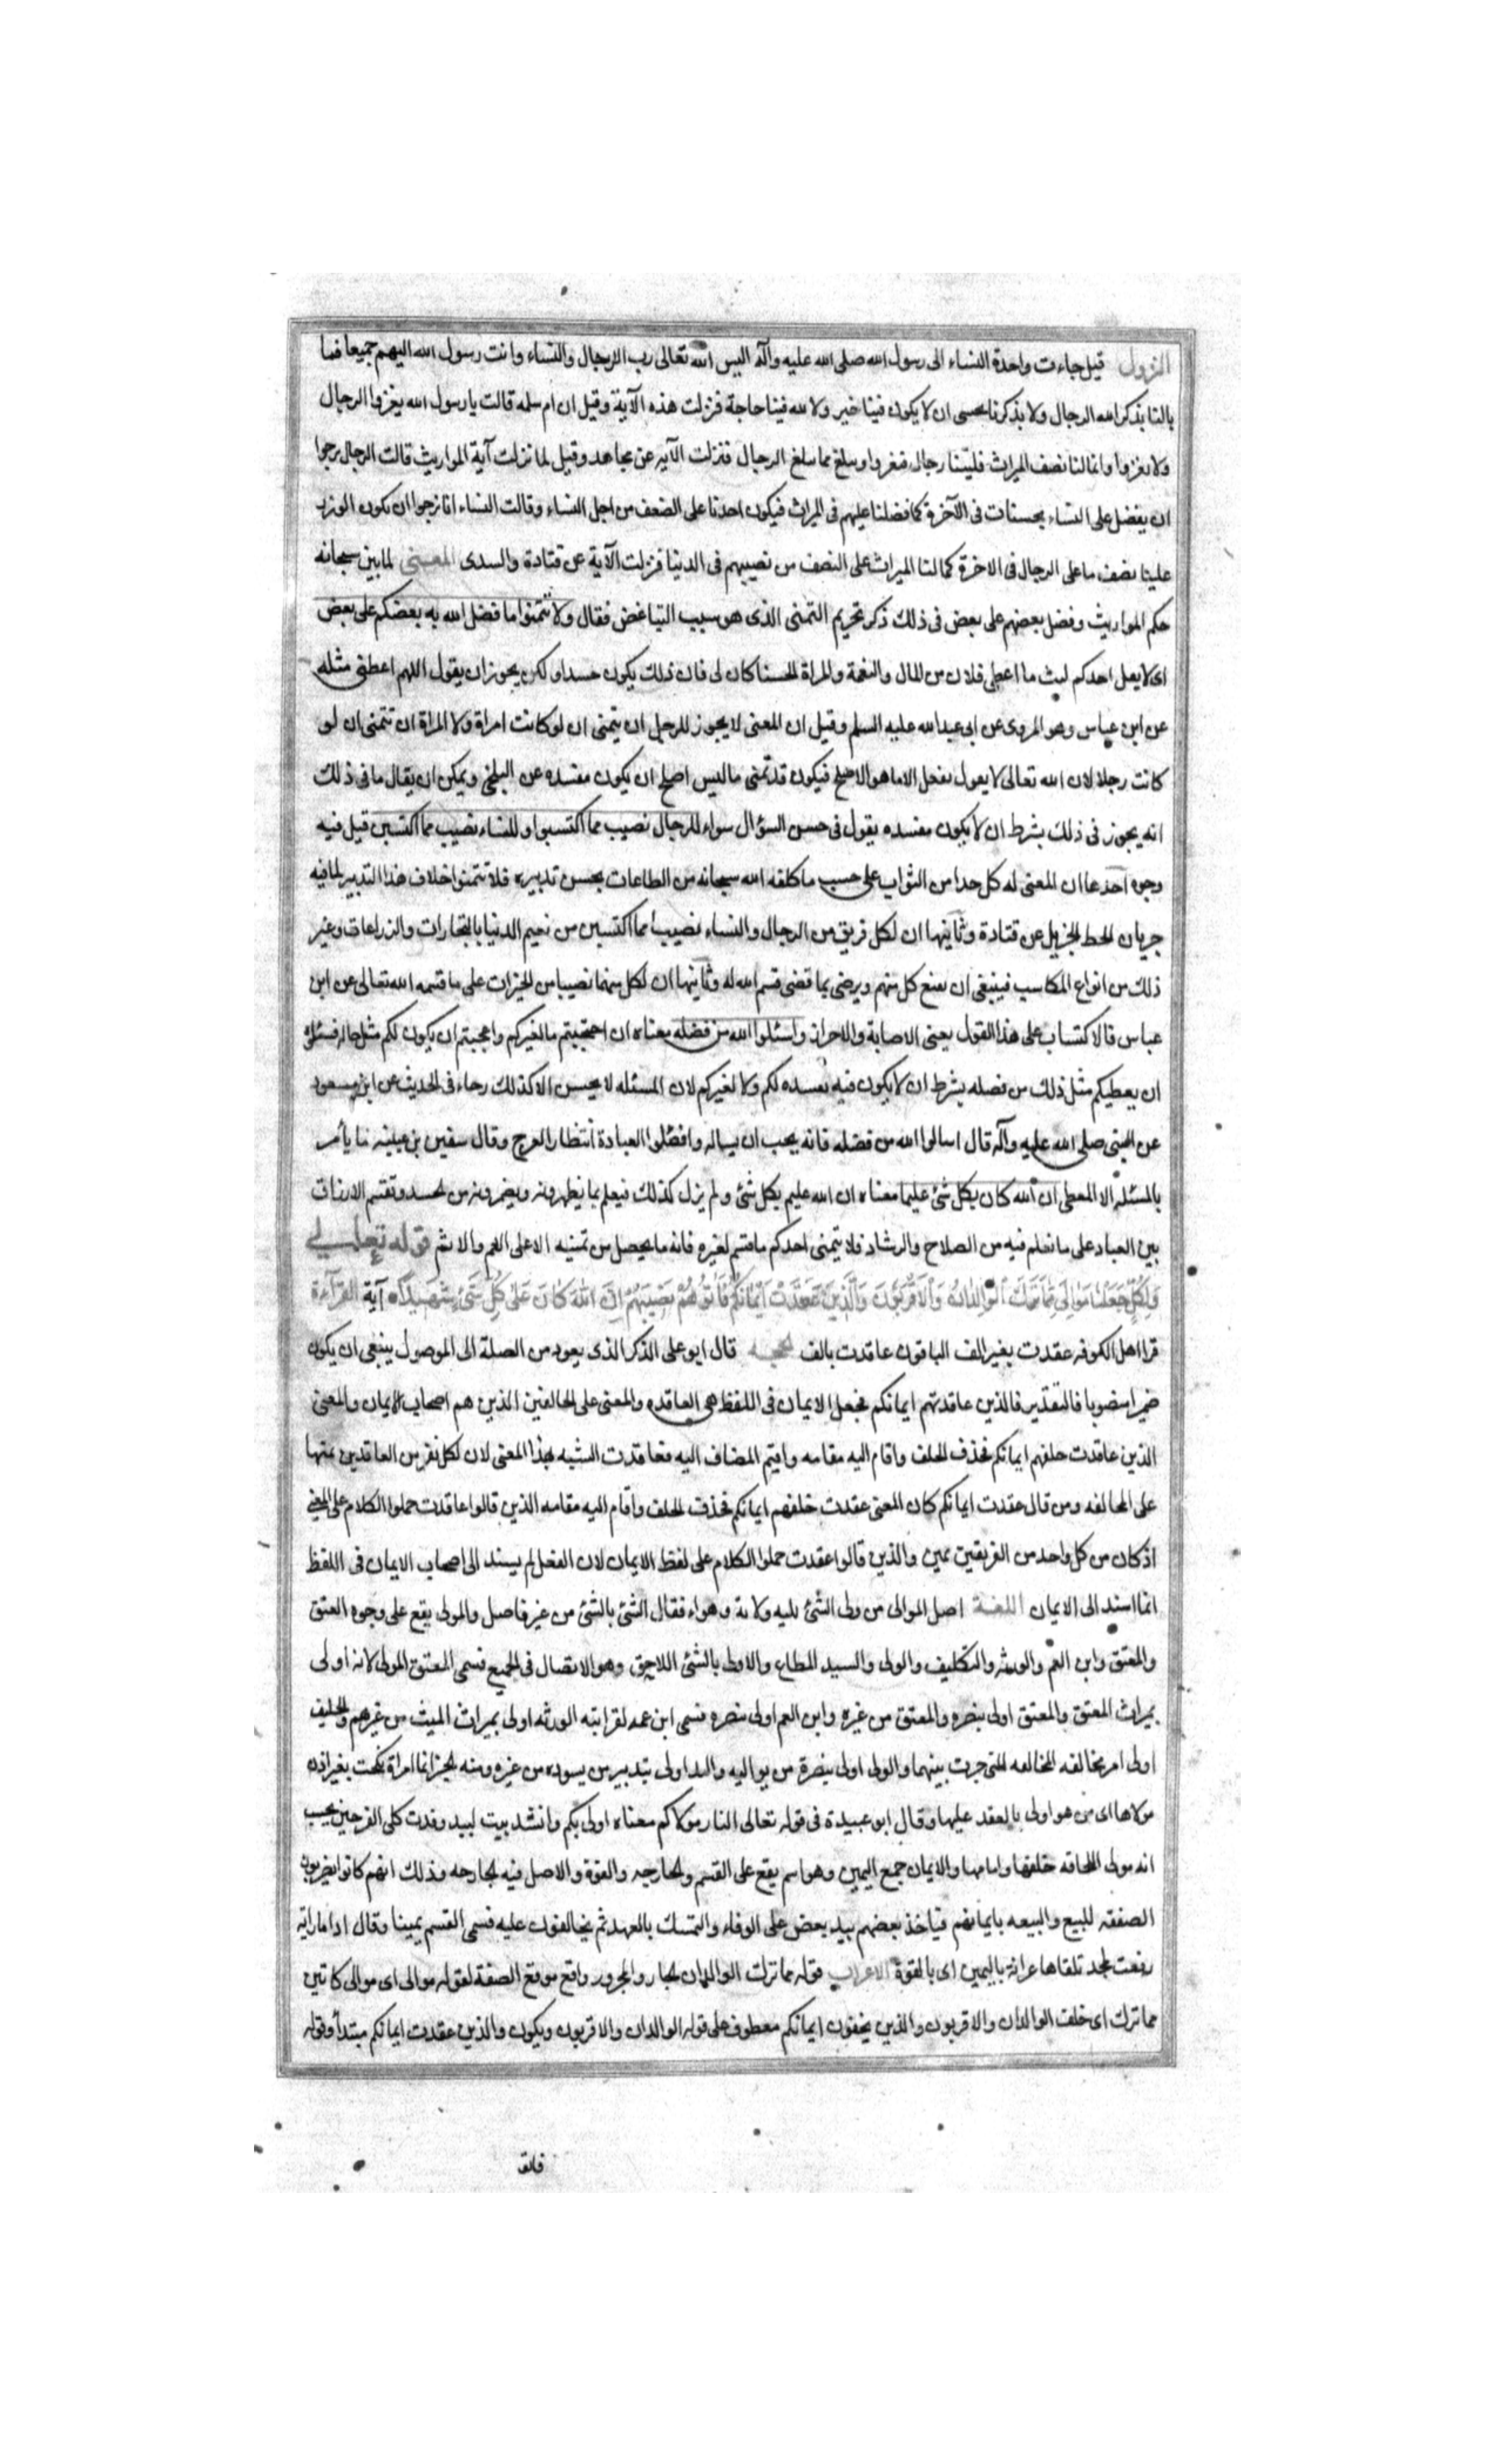 النزول قيل جاءت واحدة النساء الى رسول الله صلى الله عليه وآله اليس الله تعالى رب الرجال والنساء وانت رسول الله اليهم جميعا فما
بالنا يذكر الله الرجال ولا يذكرنا نخشى ان لا يكون فينا خير ولا لله فينا حاجة فنزلت هذه الآية وقيل ان ام سلمه قالت يا رسول الله يغزوا الرجال
ولا نغزوا وانما لنا نصف الميراث فليتنا رجال فنغزوا ونبلغ ما سلغ الرجال فنزلت الآيه عن مجاهد وقيل لما نزلت آية المواريث قالت الرجال نرجوا
ان يفضل على النساء بحسنات فى الآخرة كما فضلنا عليهم فى الميراث فيكون احدنا على الضعف من اجل النساء وقالت النساء انا نرجوا ان يكون الوزر
علينا نصف ما على الرجال فى الاخرة كما لنا الميراث على النصف من نصيبهم فى الدنيا فنزلت الآية عن قتادة والسدى المعنى لما بين سبحانه
حكم المواريث وفضل بعضهم على بعض فى ذلك ذكر تحريم التمنى الذى هو سبب التباغض فقال ولا تتمنوا ما فضل الله به بعضكم على بعض
اى لا يقل احدكم ليت ما اعطى فلان من المال والنعمة والمراة الحسنا كان لى فان ذلك يكون حسدا ولكن يجوز ان يقول اللهم اعطنى مثله
عن ابن عباس وهو المروى عن ابى عبد الله عليه السلم وقيل ان المعنى لا يجوز للرجل ان يتمنى ان لو كانت امراة ولا المراة ان تتمنى ان لو
كانت رجلا لان الله تعالى لا يفعل الا ما هو الاصلح فيكون قد تمنى ما ليس اصلح ان يكون مفسده عن البلخى ويمكن ان يقال ما فى ذلك
انه يجوز فى ذلك بشرط ان لا يكون مفسده يقول فى حسن السؤال سواء للرجال نصيب مما اكتسبوا وللنساء نصيب مما اكتسبن قيل فيه
وجوه احدها ان المعنى له كل حدا من الثواب على حسب ما كلفه الله سبحانه من الطاعات بحسن تدبيره فلا تتمنوا خلاف هذا التدبير لما فيه
حريان الحظ الجزيل عن قتادة وثانيها ان لكل فريق من الرجال والنساء نصيبا مما اكتسبن من نعيم الدنيا بالتجارات والزراعات وغير
ذلك من انواع المكاسب فينبغى ان يقنع كل منهم ويرضى بما قضى قسم الله له وثانيها ان لكل منهما نصيبا من الخيرات على ما قسمه الله تعالى عن ابن
عباس فالاكتساب على هذا القول يعنى الاصابة والاحراز واسئلوا الله من فضله معناه ان احتجتم ما لغيركم واعجبتم ان يكون لكم مثل ماله فسئلوا
ان يعطيكم مثل ذلك من فضله بشرط ان لا يكون فيه مفسده لكم ولا لغيركم لان المسئله لا يحسن الا كذلك وجاء فى الحديث عن ابن مسعود
عن النبى صلى الله عليه وآله قال اسالوا الله من فضله فانه يحب ان يساله وافضلوا العبادة انتظار الفرج وقال سفين بن عيينه ما يأمر
بالمسئله الا المعطى ان الله كان بكل شئ عليما معناه ان الله عليم بكل شئ ولم يزل كذلك فيعلم بما يظهرونه ويضمرونه من الحسد وتقسم الارزاق
بين العباد على ما نعلم فيه من الصلاح والرشاد فلا يتمنى احدكم ما قسم لغيره فانه ما يحصل من تمنيه الا على الغم والاثم قوله تعالى
وَلِكُلٍّ جَعَلْنَا مَوَالِىَ مِمَّا تَرَكَ الْوَالِدَانِ وَالْاَقْرَبُونَ وَالَّذِينَ عَقَدَتْ اَيْمَانُكُمْ فَآتُوهُمْ نَصِيبَهُمْ اِنَّ اللهَ كَانَ عَلَى كُلِّ شَىْءٍ شَهِيدًا آية القرآءة
قرا اهل الكوفه عقدت بغير الف الباقون عاقدت بالف الحجه قال ابو على الذكر الذى يعود من الصلة الى الموصول ينبغى ان يكون
ضميرا منصوبا فالتقدير فالذين عاقدتهم ايمانكم فجعل الايمان فى اللفظ هى العاقده والمعنى على الحالفين الذين هم اصحاب الايمان والمعنى
الذين عاقدت حلفهم ايمانكم فحذف الحلف واقام اليه مقامه واقيم المضاف اليه فعاقدت الشبه بهذا المعنى لان لكل نفر من العاقدين يمينا
على المحالفه ومن قال عقدت ايمانكم كان المعنى عقدت حلفهم ايمانكم فحذف الحلف واقام اليه مقامه الذين قالوا عاقدت حملوا الكلام على المعنى
اذ كان من كل واحد من الفريقين يمين والذين قالوا عقدت حملوا الكلام على لفظ الايمان لان الفعل لم يسند الى اصحاب الايمان فى اللفظ
انما اسند الى الايمان اللغـة اصل الموالى من ولى الشئ يليه ولاية وهو اتصال الشئ بالشئ من غير فاصل والمولى يقع على وجوه العتق
والمعتق وابن العم والورثه والتكليف والولى والسيد المطاع والاولى بالشئ اللاحق وهو الاتصال فى الجميع فسمى المعتق المولى لانه اولى
بميراث المعتق والمعتق اولى بنصره والمعتق من غيره وابن العم اولى بنصره فسمى ابن عمه لقرابته الورثه اولى بميراث الميت من غيرهم والحليف
اولى امر مخالفه المخالعه التى جرت بينهما والولى اولى بنصرة من يواليه والسد اولى بتدبير من يسوده من غيره ومنه الخبر ايما امراة نكحت بغير اذن
مولاها اى من هو اولى بالعقد عليها وقال ابو عبيدة فى قوله تعالى النار مولاكم معناه اولى بكم وانشد بيت لبيد وغدت كلى الفرجين يحسب
انه مولى المخافه خلفها وامامها والايمان جمع اليمين وهو اسم يقع على القسم والجارحه والقوة والاصل فيه الجارحه وذلك انهم كانوا يضربون
الصفقه للبيع والبيعه بايمانهم فياخذ بعضهم بيد بعض على الوفاء والتمسك بالعهد ثم يتحالفون عليه فسمى القسم يمينا وقال اذا ما راية
رفعت لمجد تلقاها عرابة باليمين اى بالقوة الاعراب قوله مما ترك الوالدان الجار والمجرور واقع موقع الصفة لقوله موالى اى موالى كائنين
مما ترك اى خلف الوالدان والاقربون والذين يخفون ايمانكم معطوف على قوله الوالدان والاقربون ويكون والذين عقدت ايمانكم مبتدأ وقوله
فاتو